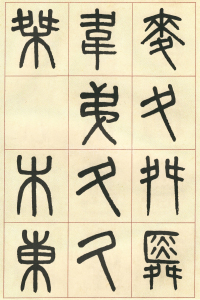 麥夊舛舜
韋弟夂久
桀
木東